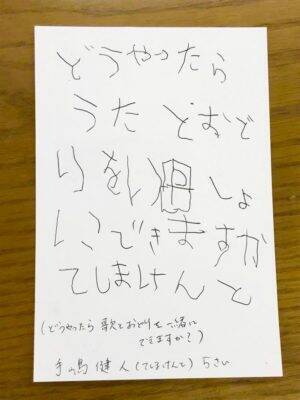 どうやったら
うた とおど
りをいっしょ
にできますか
てしまけんと
(どうやったら 歌とおどりを一緒に
できますか?)
手嶋 健人 (てしまけんと) 5さい